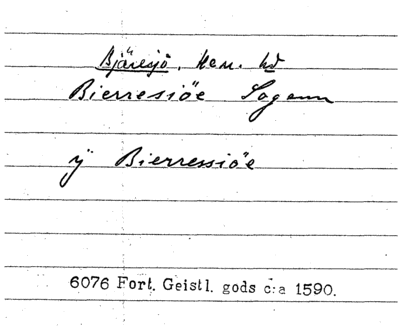 Bjäresjö, Herr. hd
Bierresiöe Sogenn
ÿ Bierressiöe
6076 Fort. Geistl. gods c:a 1590.